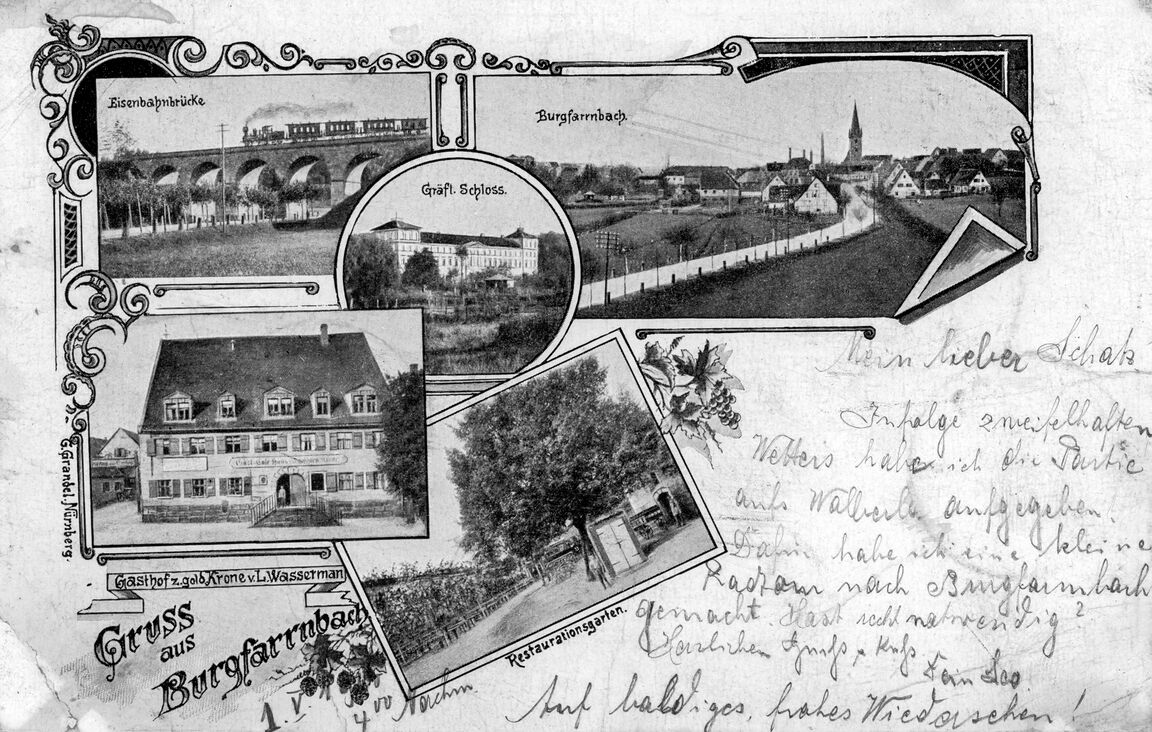 Eisenbahnbrücke
Burgfarrnbach.
Gräfl. Schloss.
G. Grandel. Nürnberg.
Gasthof z. gold. Krone v. L. Wasserman
Restaurationsgarten.
Gruss
aus
Burgfarrnbach
Mein lieber Schatz
Infolge zweifelhaften
Wetters habe ich die Partie
aufs Walberla aufgegeben!
Dafür habe ich eine kleine
Radtour nach Burgfarrnbach
gemacht. Hast recht notwendig?
Herzlichen Gruß u. Kuß
Dein Leo.
Auf baldiges, frohes Wiedersehen!
1. V. 4 00 Nachm.